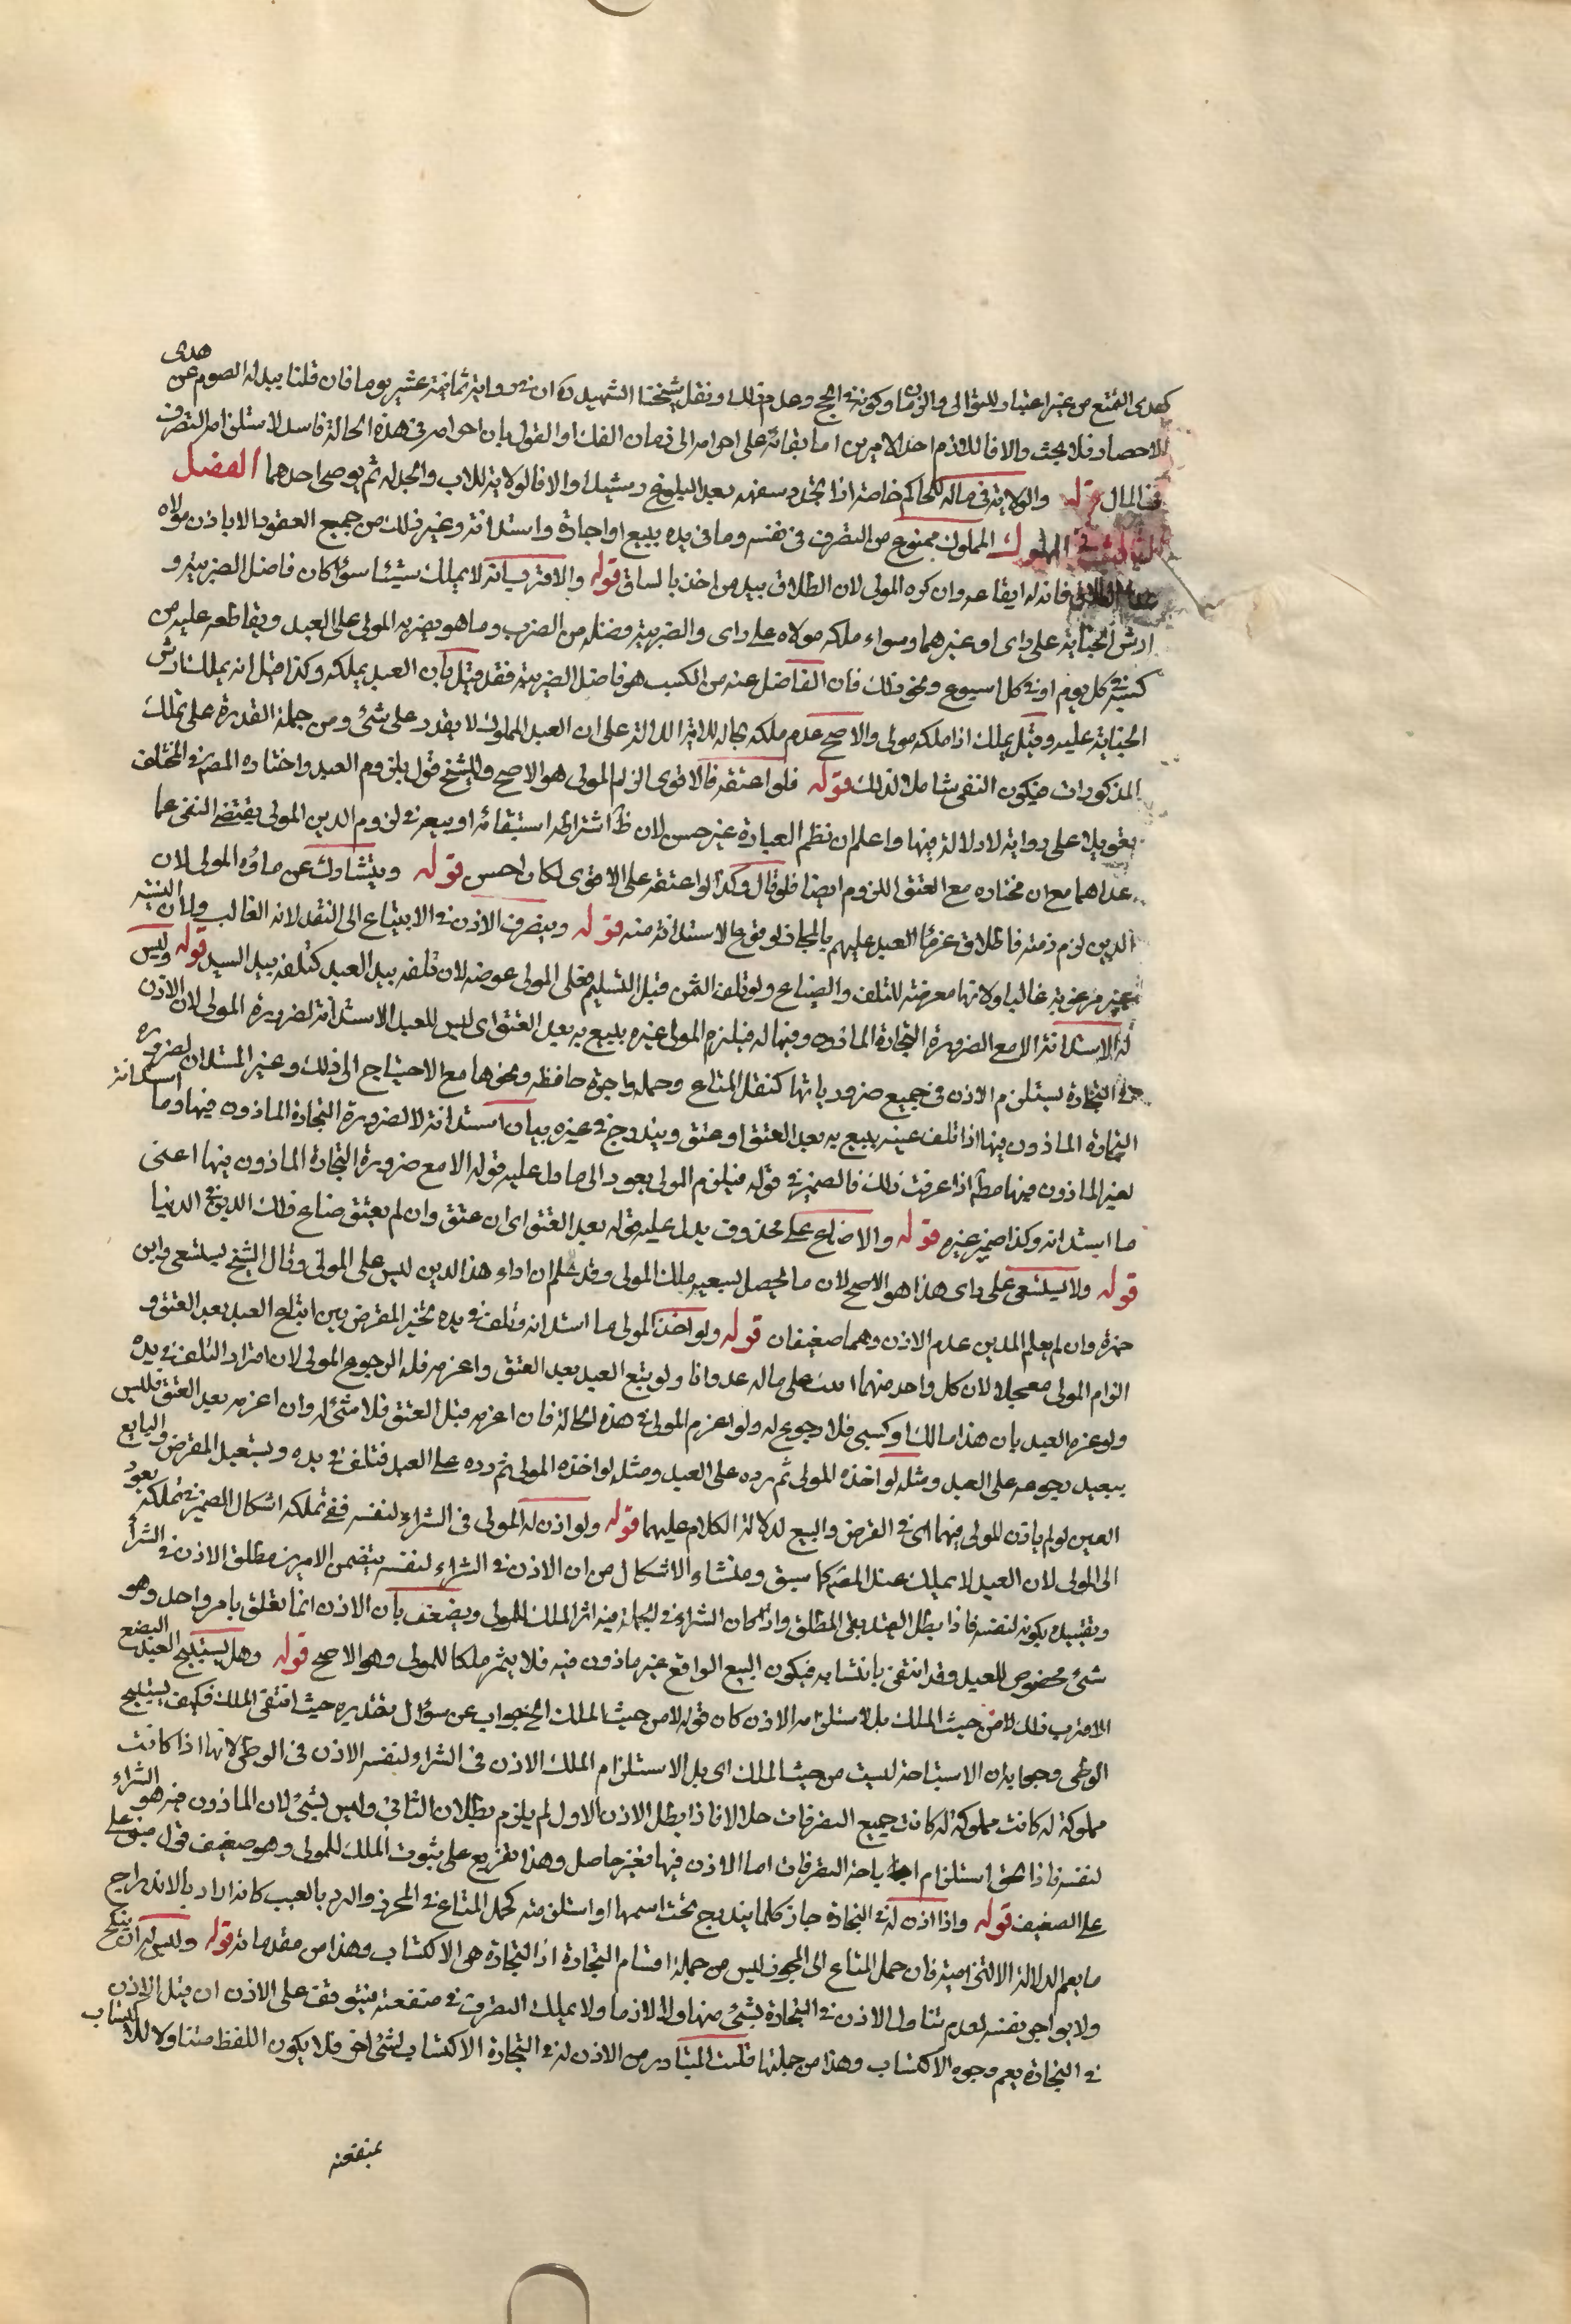 كهدى التمتع من غير اعتبار للتوالى والزمان وكونه فى الحج وعدم ذلك ونقل شيخنا الشهيد ره ان فى رواية ثمانية عشر يوما فان قلنا ببدله الصوم عن هدى
للاحصار فلا بحث والا فاللازم احد الامرين اما بقائه على احرامه الى زمان الفك او القول بان احرامه فى هذه الحالة فاسد لاستلزامه التصرف
فى المال قوله والولاية فى ماله للحاكم خاصة اذا تجدد سفهه بعد البلوغ رشيدا والا فالولاية للاب والجد له ثم يوصى احدهما الفصل
الثالث فى المملوك المملوك ممنوع من التصرف فى نفسه وما فى يده ببيع او اجارة واستدانة وغير ذلك من جميع العقود الا باذن مولاه
عدا الطلاق فان له ايقاعه وان كره المولى لان الطلاق بيد من اخذ بالساق قوله والاقرب انه لا يملك شيئا سواء كان فاضل الضريبة و
ارش الجناية على راى او غيرهما وسواء ملكه مولاه على راى والضريبة فعيلة من الضرب وما هو يضربه المولى على العبد ويقاطعه عليه من
كسبه فى كل يوم او فى كل اسبوع ونحو ذلك فان الفاضل عنه من الكسب هو فاضل الضريبة فقد قيل بان العبد يملكه وكذا قيل انه يملك ارش
الجناية عليه وقيل يملك اذا ملكه مولى والاصح عدم ملكه بحاله للاية الدالة على ان العبد المملوك لا يقدر على شئ ومن جملة القدرة على تملك
المذكورات فيكون النفى شاملا لذلك قوله فلو اعتقه فالاقوى الزام المولى هو الاصح وللشيخ قول بلزوم العبد واختاره المص فى المختلف
تعويلا على رواية لا دلالة فيها واعلم ان نظم العبارة غير حسن لان ظ اشتراطه استبقائه او بيعه فى لزوم الدين المولى يقتضى النفى عما
عداهما مع ان مختاره مع العتق اللزوم ايضا فلو قال وكذا لو اعتقه على الاقوى لكان احسن قوله ويتشارك غرماؤه المولى لان
الدين لزم ذمته فاطلاق غرماء العبد عليهم بالمجاز لوقوع الاستدانة منه قوله وينصرف الاذن فى الابتياع الى النقد لانه الغالب ولان النسية
غير مرغوبة غالبا ولانها معرضة للتلف والضياع ولو تلف الثمن قبل التسليم فعلى المولى عوضه لان تلفه بيد العبد كتلفه بيد السيد قوله وليس
له الاستدانة الا مع الضرورة التجارة الماذون فيها له فيلزم المولى غيره يتبع به بعد العتق اى ليس للعبد الاستدانة لضرورة المولى لان الاذن
فى التجارة يستلزم الاذن فى جميع ضرورياتها كنقل المتاع وحمله واجرة حافظه ونحوها مع الاحتياج الى ذلك وغير المستدان لضرورة
التجارة الماذون فيها اذا تلف عينه يتبع به بعد العتق اوعتق ويندرج فى غيره بيان استدانة لا لضرورة التجارة الماذون فيها وما استدانة
لغير الماذون فيها مط اذا عرفت ذلك فالضمير فى قوله فيلزم المولى يعود الى ما دل عليه قوله الا مع ضرورة التجارة الماذون فيها اعنى
ما استدانه وكذا ضمير غيره قوله والا ضاع على محذوف يدل عليه قوله بعد العتق اى ان عتق وان لم يعتق ضاع ذلك الدين فى الدنيا
قوله ولا يستسعى على راى هذا هو الاصح لان ما يحصل بسعيه ملك المولى وقد علم ان اداء هذا الدين ليس على المولى وقال الشيخ يستسعى وابن
حمزة وان لم يعلم المدين عدم الاذن وهما ضعيفان قوله ولو اخذ المولى ما استدانه وتلف فى يده تخير المقرض بين اتباع العبد بعد العتق و
الزام المولى معجلا لان كل واحد منهما اثبت يده على ماله عدوانا ولو يتبع العبد بعد العتق واغرمه فله الرجوع المولى لان قرار التلف فى يده
ولو غره العبد بان هذا مالك او كسبى فلا رجوع له ولو اغرم المولى فى هذه الحالة فان اغرمه قبل العتق فلا شئ له وان اغرمه بعد العتق فليس
ببعيد رجوعه على العبد ومثله لو اخذه المولى ثم رده على العبد ومثله لو اخذه المولى ثم رده على العبد فتلف فى يده ويستعيد المقرض والبايع
العين لو لم ياذن للمولى فيهما اى فى القرض والبيع لدلالة الكلام عليهما قوله ولو اذن له المولى فى الشراء لنفسه ففى تملكه اشكال الضمير فى تملكه يعود
الى المولى لان العبد لا يملك عند المص كما سبق ومنشاء الاشكال من ان الاذن فى الشراء لنفسه يتضمن الامرين مطلق الاذن فى الشراء
وتقييده بكونه لنفسه فاذا بطل القيد بقى المطلق واذا كان الشراء فى الجملة فيه اثر الملك للمولى ويضعف بان الاذن انما تعلق بامر واحد وهو
شئ مخصوص للعبد وقد انتفى بانتفائه فيكون البيع الواقع غير ماذون فيه فلا يثمر ملكا للمولى وهو الاصح قوله وهل يستبيح العبد البضع
الاقرب ذلك لا من حيث الملك بل لاستلزامه الاذن كان قوله لا من حيث الملك الخ جواب عن سؤال تقديره حيث انتفى الملك فكيف يستبيح
الوطى وجوابه ان الاستباحة ليست من حيث الملك اى بل لاستلزام الملك الاذن فى الشراء لنفسه الاذن فى الوطى لانها اذا كانت
مملوكة له كانت مملوكة له كانت جميع التصرفات حلالا فاذا بطل الاذن الاول لم يلزم بطلان الثانى وليس بشئ لان الماذون فيه هو الشراء
لنفسه فاذا انتفى استلزام اباحة التصرفات اما الاذن فيها فغير حاصل وهذا تفريع على ثبوت الملك للمولى وهو ضعيف قول مبنى على
على الضعيف قوله واذا اذن له فى التجارة جاز كلما يندرج تحت اسمها او استلزمته كحمل المتاع فى المحرز والرد بالعيب كانه اراد بالاندراج
ما يعم الدلالة الالتزامية فان حمل المتاع الى المحرز ليس من جملة اقسام التجارة اذ التجارة هى الاكتساب وهذا من مقدماته قوله وليس له ان ينكح
ولا يواجر نفسه لعدم تناول الاذن فى التجارة بشئ منها ولا لازما ولا يملك التصرف فى منفعته فيتوقف على الاذن ان قيل الاذن
فى التجارة يعم وجوه الاكتساب وهذا من جملتها قلت المتبادر من الاذن له فى التجارة الاكتساب لشئ اخر فلا يكون اللفظ متناولا للاكتساب
بمنفعته